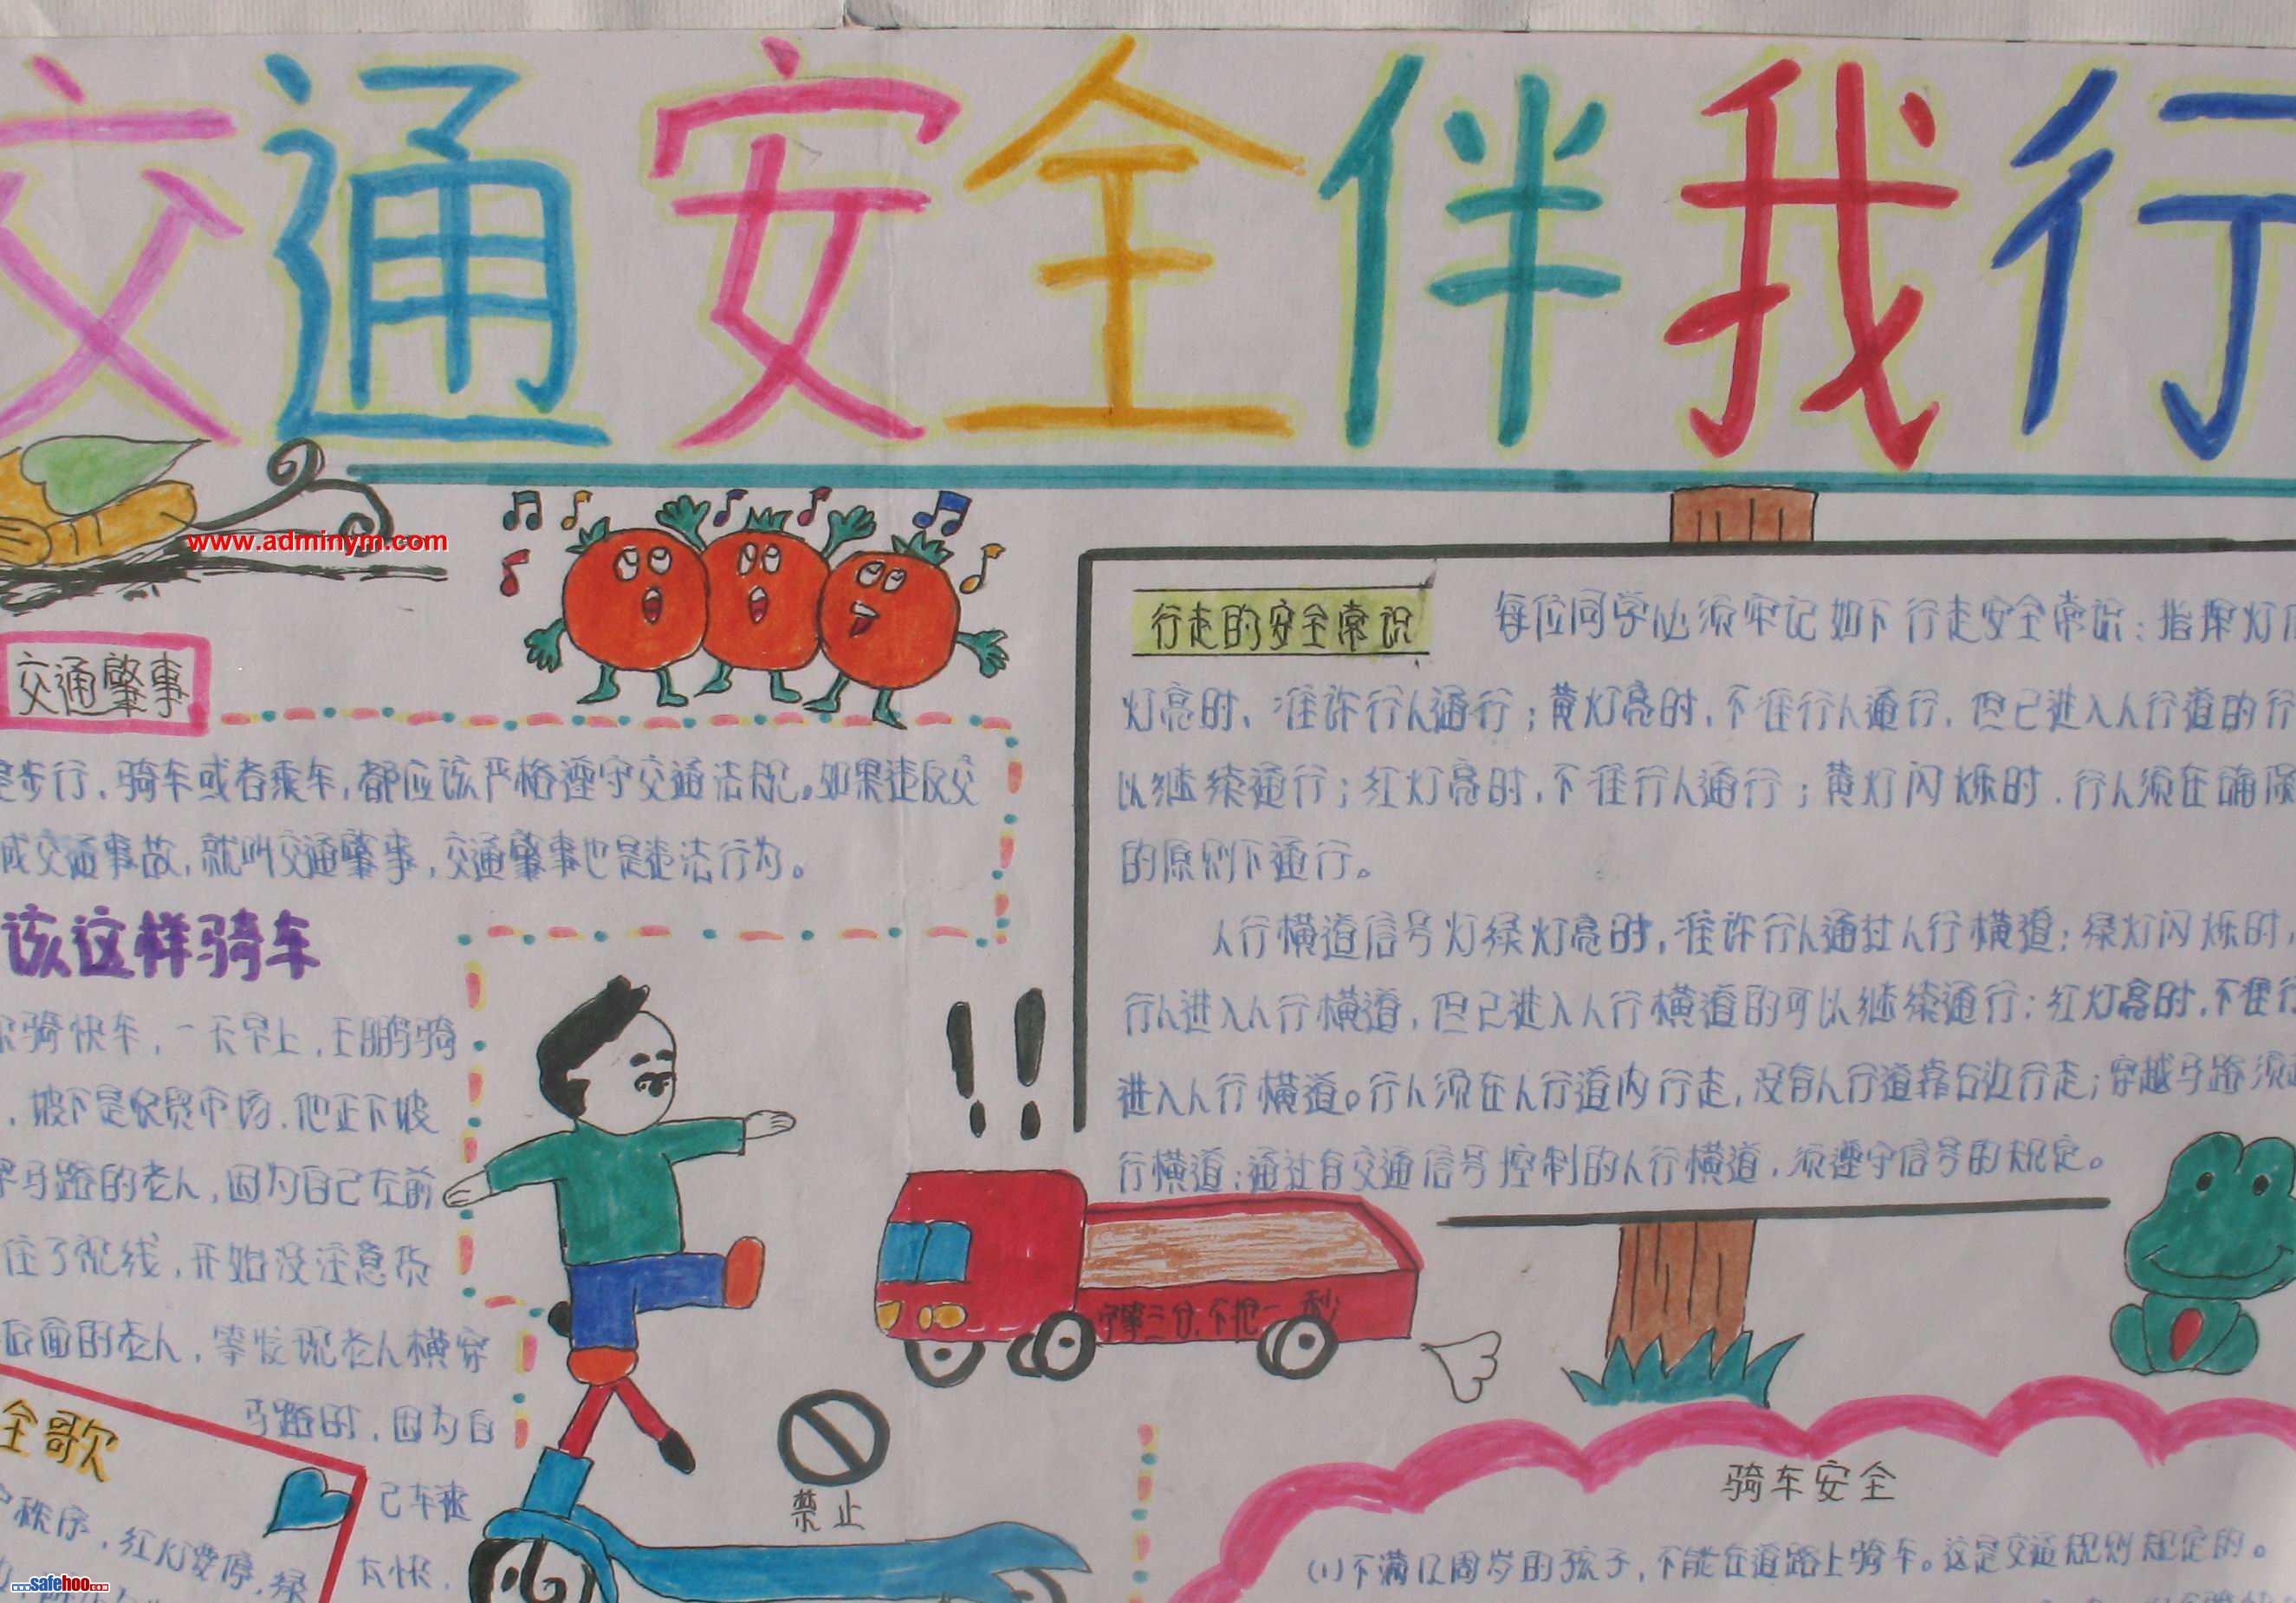 交通安全伴我行
www.adminym.com
交通肇事
步行，骑车或者乘车，都应该严格遵守交通法规。如果违反交
成交通事故，就叫交通肇事，交通肇事也是违法行为。
该这样骑车
骑快车，一天早上，王鹏骑
，坡下是农贸市场，他正下坡
马路的老人，因为自己在前
住了视线，开始没注意
后面的老人，等发现老人横穿
马路时，因为自
己车速
太快，
全歌
秩序，红灯要停，绿
行走的安全常识
每位同学必须牢记如下行走安全常识：指挥灯
灯亮时、准许行人通行；黄灯亮时，不准行人通行，但已进入人行道的行
以继续通行；红灯亮时，不准行人通行；黄灯闪烁时，行人须在确保
的原则下通行。
人行横道信号灯绿灯亮时，准许行人通过人行横道；绿灯闪烁时，
行人进入人行横道，但已进入人行横道的可以继续通行；红灯亮时，不准行
进入人行横道。行人须在人行道内行走，没有人行道靠右边行走；穿越马路须
行横道；通过有交通信号控制的人行横道，须遵守信号的规定。
宁等三分，不抢一秒
禁止
骑车安全
(1)不满12周岁的孩子，不能在道路上骑车。这是交通规则规定的。
safehoo.com